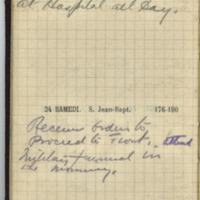 at Hospital all Day.
24 SAMEDI. S. Jean-Bapt. 176-190
Receive Orders to
Proceed to Front. Attend
funeral in
the Morning.